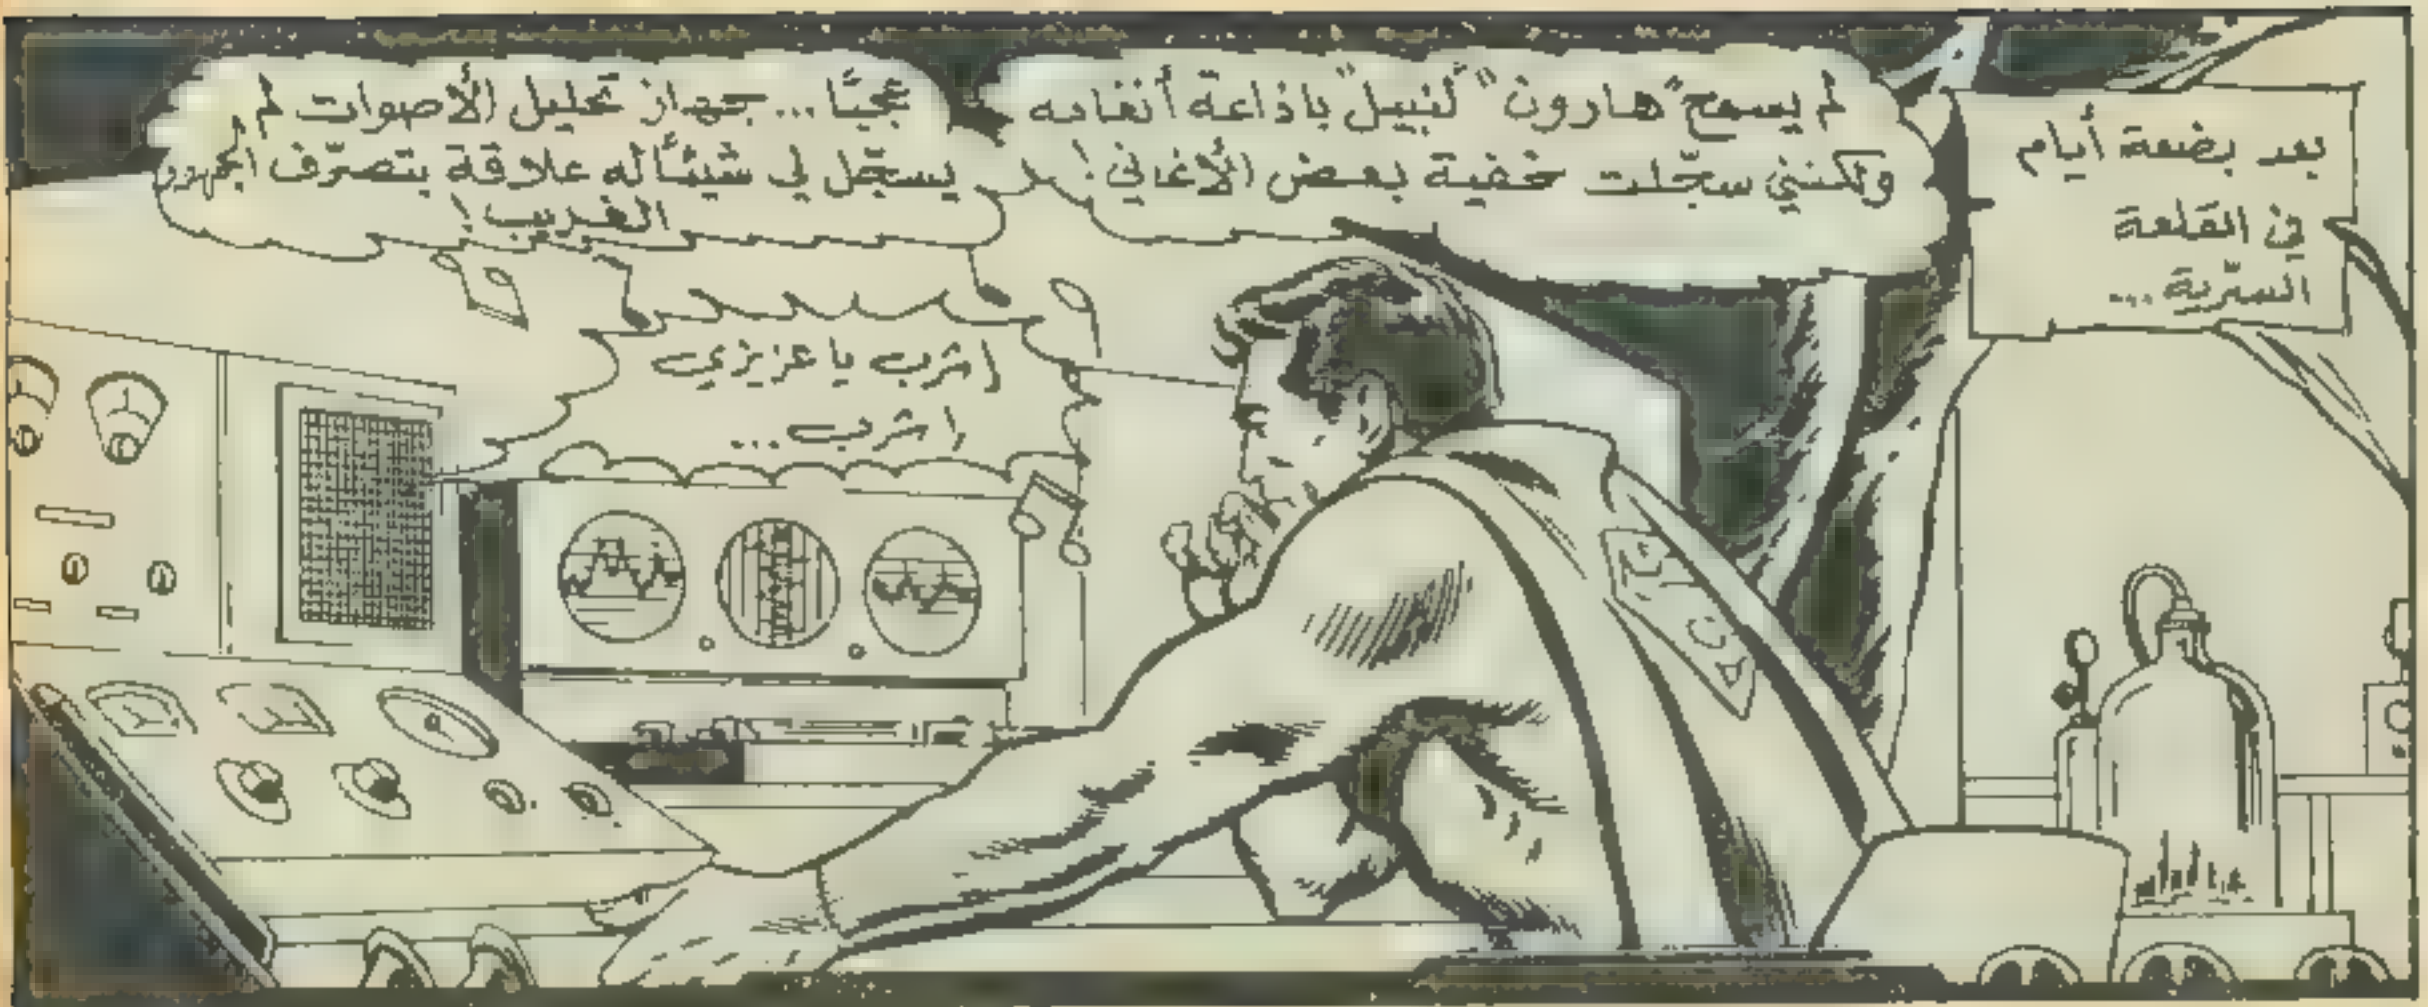 بعد بضعة أيام
في القلعة
السرّية ...
لم يسمح "هارون" "لنبيل" باذاعة أنغامه
ولكنني سجّلت خفية بعض الأغاني !
عجبًا ... جهاز تحليل الأصوات لم
يسجّل لي شيئًا له علاقة بتصرّف الجمهور
الغريب !
اشرب يا عزيزي
اشرب ...